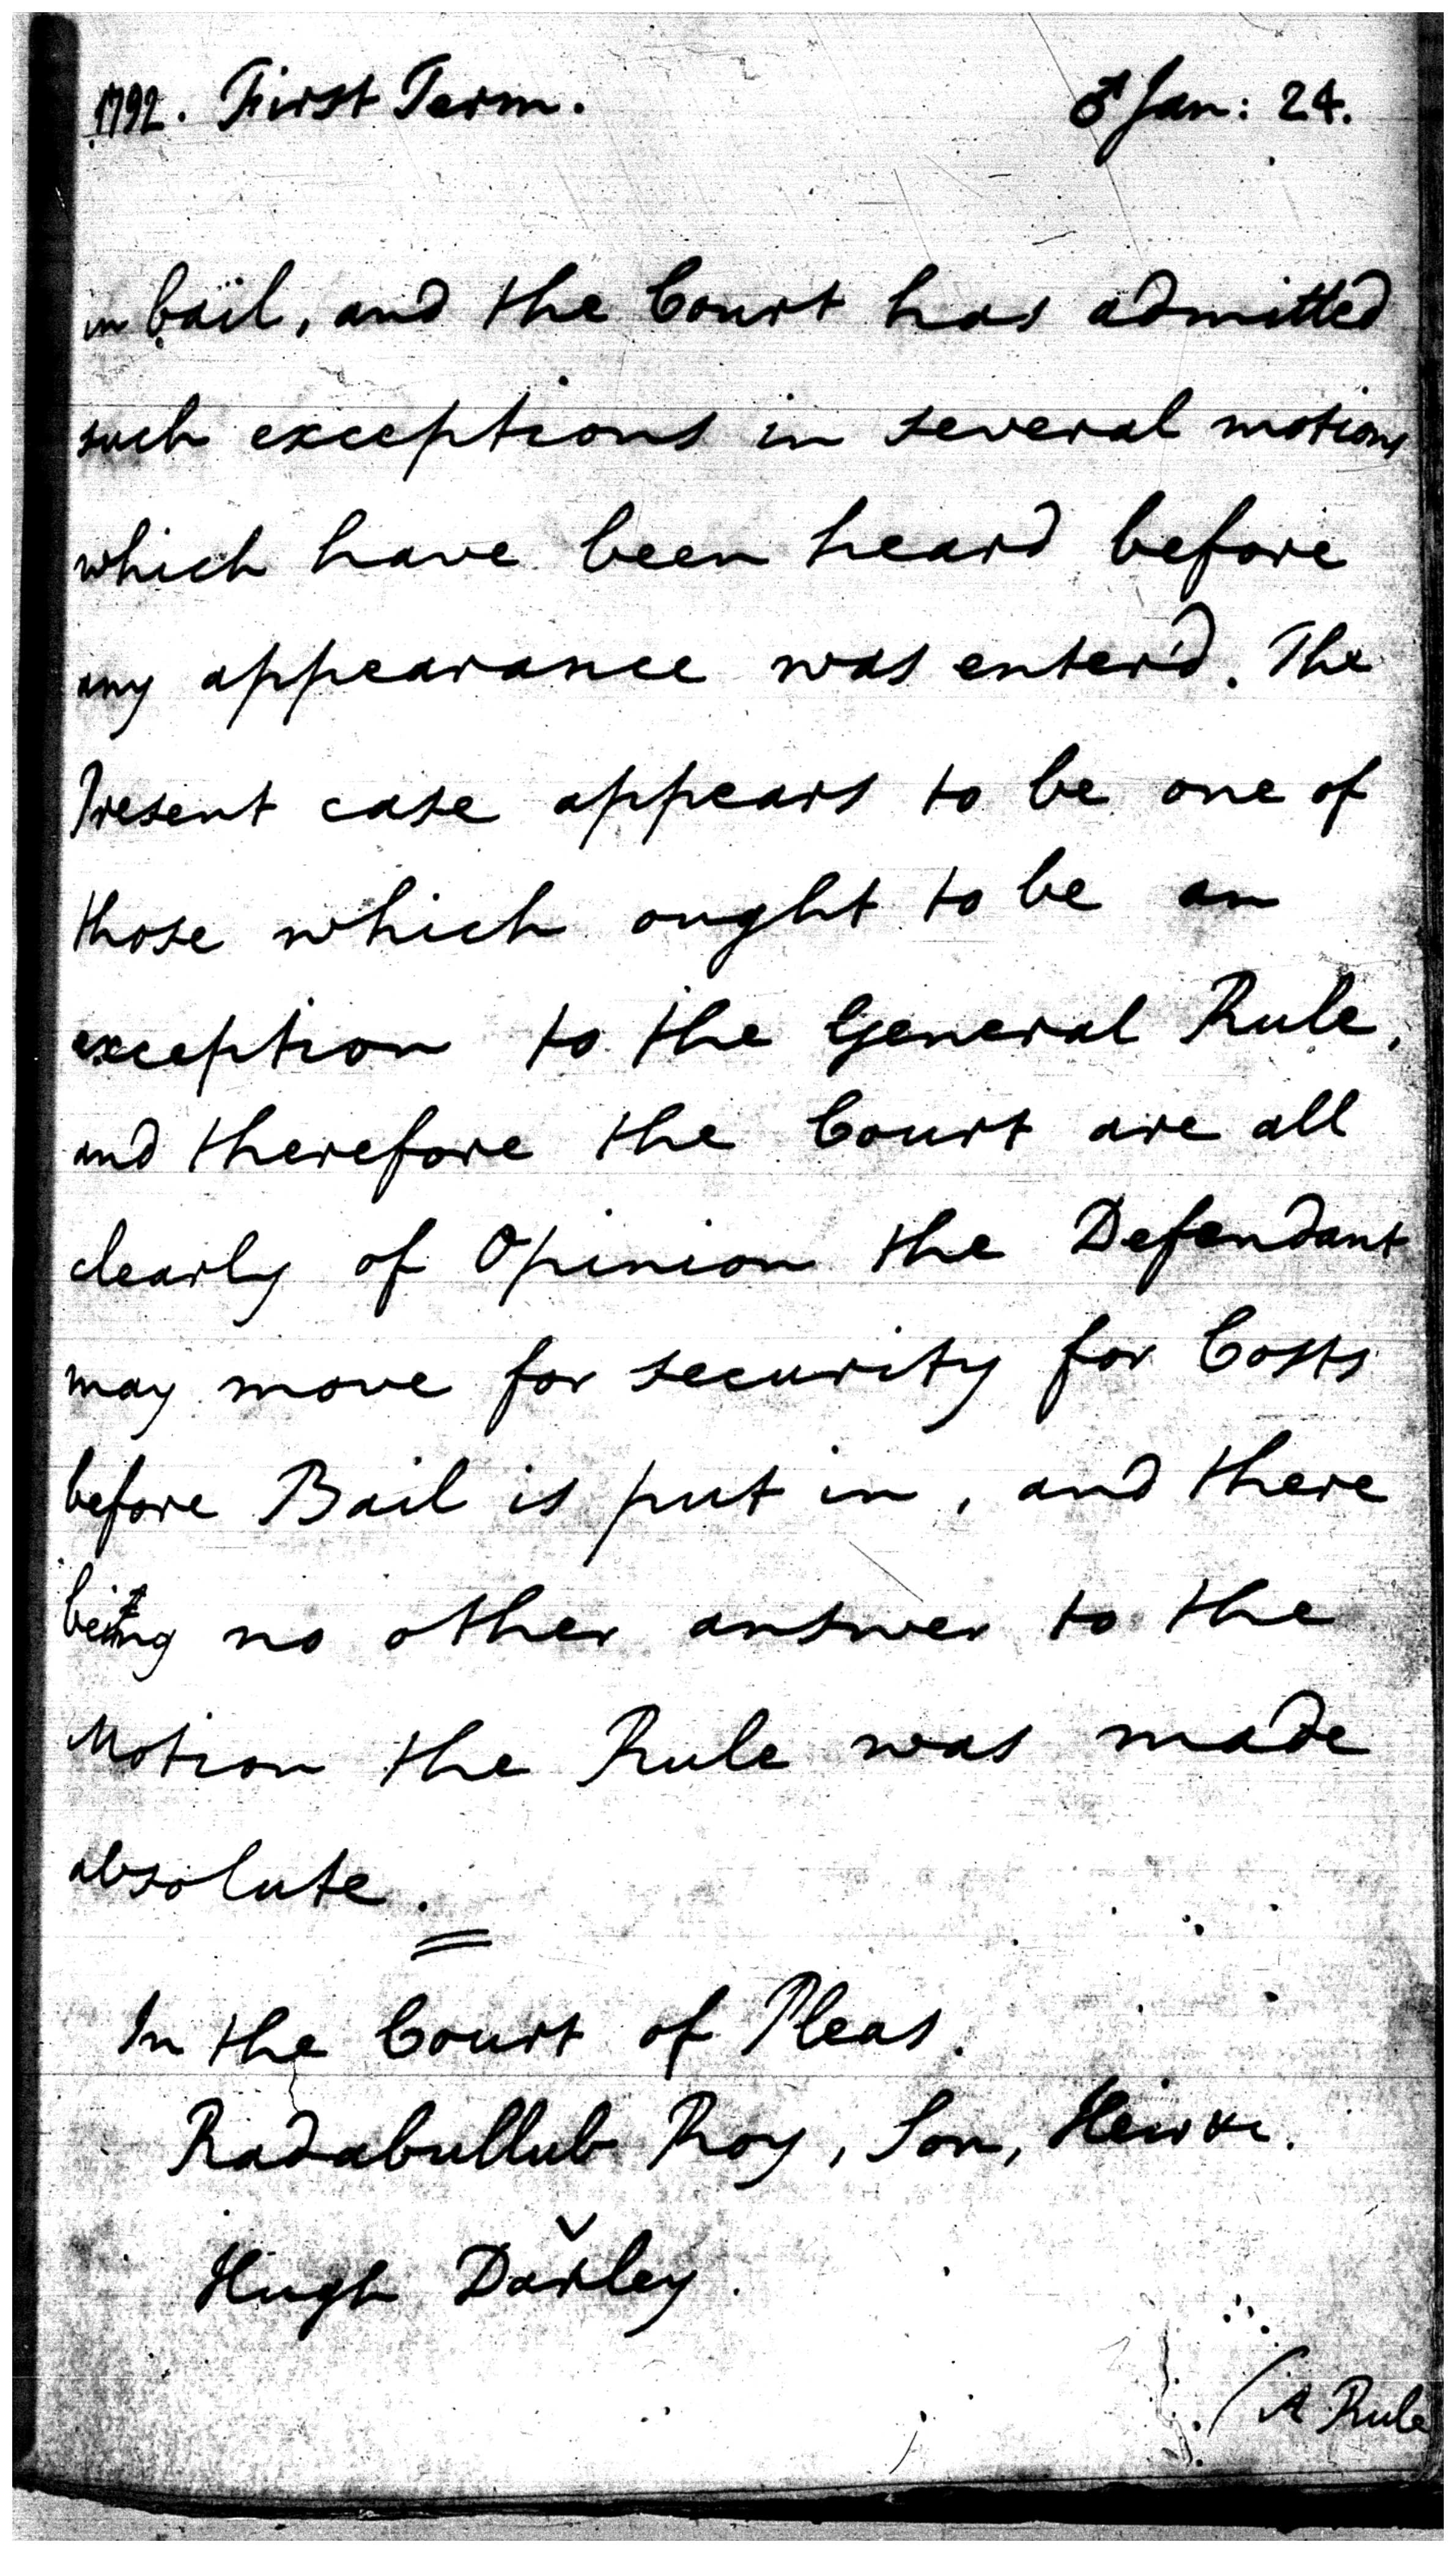 1792. First Term. ♂ Jan: 24.
in bail, and the Court has admitted
such exceptions in several motions
which have been heard before
any appearance was enter'd. The
Present case appears to be one of
those which ought to be an
exception to the General Rule,
and therefore the Court are all
clearly of Opinion the Defendant
may move for security for Costs
before Bail is put in, and there
being no other answer to the
Motion the Rule was made
absolute.
In the Court of Pleas.
Radabullub Roy, Son, Heir &c.
v
Hugh Darley.
(A Rule